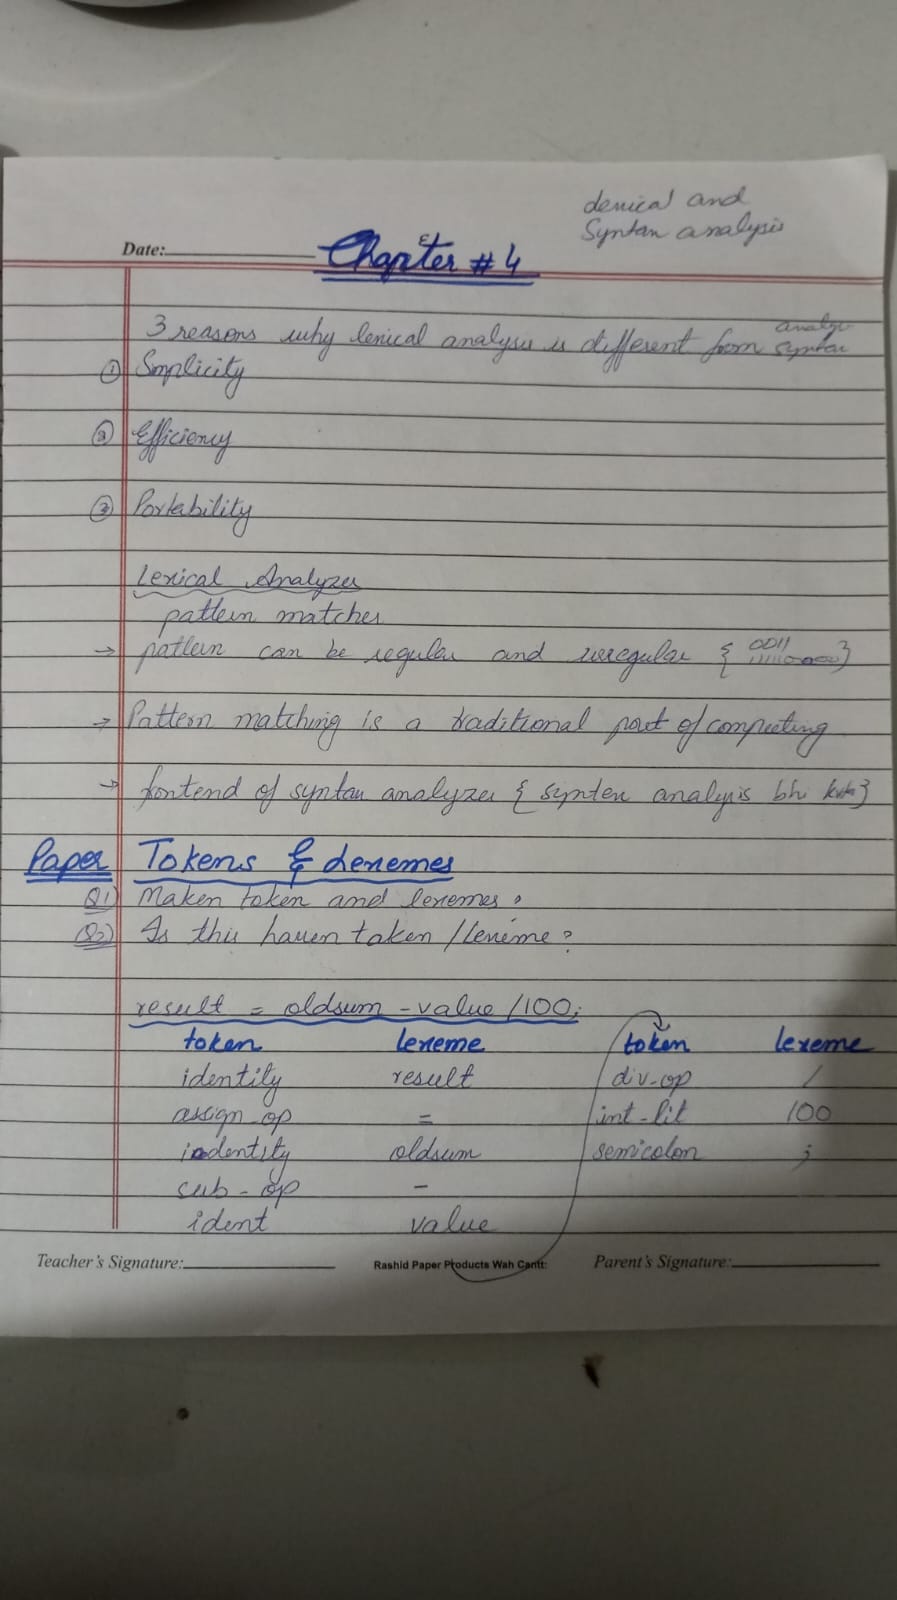 lexical and
Syntax analysis
Date:
Chapter # 4
3 reasons why lexical analysis is different from syntax analysis
① Simplicity
② Efficiency
③ Portability
Lexical Analyzer
pattern matcher
→ pattern can be regular and irregular { 0011
→ Pattern matching is a traditional part of computing
→ fontend of syntax analyzer { syntex analysis bhi krta}
Paper Tokens & Lexemes
Q1) Maken token and lexemes.
Q2) Is this haven token / lexeme?
result = oldsum - value / 100;
token lexeme token lexeme
identity result div-op /
assign-op = int-lit 100
identity oldsum semicolon ;
sub-op -
ident value
Teacher's Signature: Rashid Paper Products Wah Cantt: Parent's Signature: